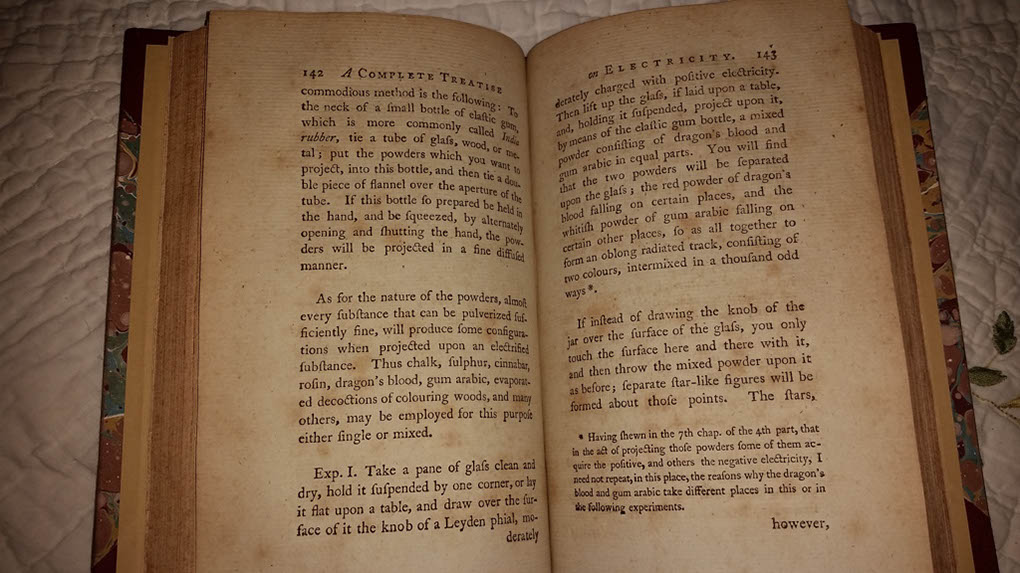 142 A COMPLETE TREATISE
commodious method is the following: To
the neck of a ſmall bottle of elaſtic gum,
which is more commonly called India
rubber, tie a tube of glaſs, wood, or me-
tal; put the powders which you want to
project, into this bottle, and then tie a dou-
ble piece of flannel over the aperture of the
tube. If this bottle ſo prepared be held in
the hand, and be ſqueezed, by alternately
opening and ſhutting the hand, the pow-
ders will be projected in a fine diffuſed
manner.
As for the nature of the powders, almoſt
every ſubſtance that can be pulverized ſuf-
ficiently fine, will produce ſome configura-
tions when projected upon an electrified
ſubſtance. Thus chalk, ſulphur, cinnabar,
roſin, dragon's blood, gum arabic, evaporat-
ed decoctions of colouring woods, and many
others, may be employed for this purpoſe
either ſingle or mixed.
Exp. I. Take a pane of glaſs clean and
dry, hold it ſuſpended by one corner, or lay
it flat upon a table, and draw over the ſur-
face of it the knob of a Leyden phial, mo-
derately
on ELECTRICITY. 143
derately charged with poſitive electricity.
Then lift up the glaſs, if laid upon a table,
and, holding it ſuſpended, project upon it,
by means of the elaſtic gum bottle, a mixed
powder conſiſting of dragon's blood and
gum arabic in equal parts. You will find
that the two powders will be ſeparated
upon the glaſs; the red powder of dragon's
blood falling on certain places, and the
whitiſh powder of gum arabic falling on
certain other places, ſo as all together to
form an oblong radiated track, conſiſting of
two colours, intermixed in a thouſand odd
ways *.
If inſtead of drawing the knob of the
jar over the ſurface of the glaſs, you only
touch the ſurface here and there with it,
and then throw the mixed powder upon it
as before; ſeparate ſtar-like figures will be
formed about thoſe points. The ſtars,
* Having ſhewn in the 7th chap. of the 4th part, that
in the act of projecting thoſe powders ſome of them ac-
quire the poſitive, and others the negative electricity, I
need not repeat, in this place, the reaſons why the dragon's
blood and gum arabic take different places in this or in
the following experiments.
however,